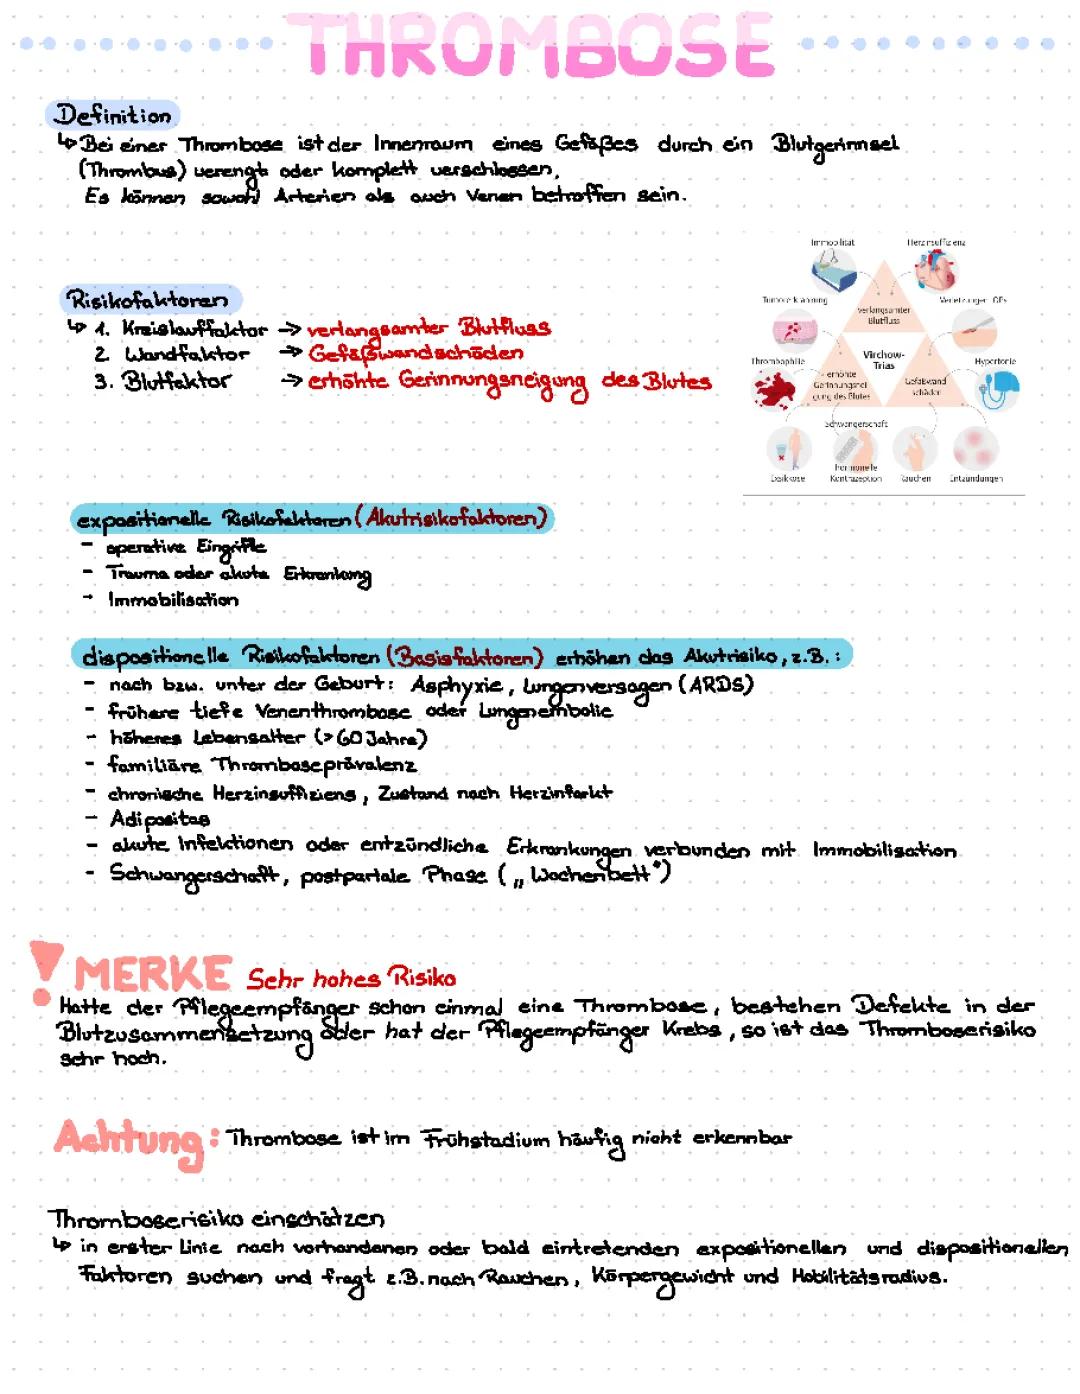 THROMBOSE
Definition
↳ Bei einer Thrombose ist der Innenraum eines Gefäßes durch ein Blutgerinnsel
(Thrombus) verengt oder komplett verschlossen,
Es können sowohl Arterien als auch Venen betroffen sein.
Risikofaktoren
↳ 1. Kreislauffaktor → verlangsamter Blutfluss
2. Wandfaktor → Gefäßwandschäden
3. Blutfaktor → erhöhte Gerinnungsneigung des Blutes
Immobilität
Herzinsuffizienz
Tumorerkrankung
verlangsamter
Blutfluss
Verletzungen, OPs
Thrombophilie
Virchow-
Trias
Hypertonie
erhöhte
Gerinnungsnei
gung des Blutes
Gefäßwand
schäden
Schwangerschaft
Exsikkose
hormonelle
Kontrazeption
Rauchen
Entzündungen
expositionelle Risikofaktoren (Akutrisikofaktoren)
- operative Eingriffe
- Trauma oder akute Erkrankung
- Immobilisation
dispositionelle Risikofaktoren (Basisfaktoren) erhöhen das Akutrisiko, z.B. :
- nach bzw. unter der Geburt: Asphyxie, Lungenversagen (ARDS)
- frühere tiefe Venenthrombose oder Lungenembolie
- höheres Lebensalter (> 60 Jahre)
- familiäre Thromboseprävalenz
- chronische Herzinsuffiziens, Zustand nach Herzinfarkt
- Adipositas
- akute Infektionen oder entzündliche Erkrankungen verbunden mit Immobilisation
- Schwangerschaft, postpartale Phase („ Wochenbett")
! MERKE Sehr hohes Risiko
Hatte der Pflegeempfänger schon einmal eine Thrombose, bestehen Defekte in der
Blutzusammensetzung oder hat der Pflegeempfänger Krebs, so ist das Thromboserisiko
sehr hoch.
Achtung: Thrombose ist im Frühstadium häufig nicht erkennbar
Thromboserisiko einschätzen
↳ in erster Linie nach vorhandenen oder bald eintretenden expositionellen und dispositionellen
Faktoren suchen und fragt z.B. nach Rauchen, Körpergewicht und Mobilitätsradius.